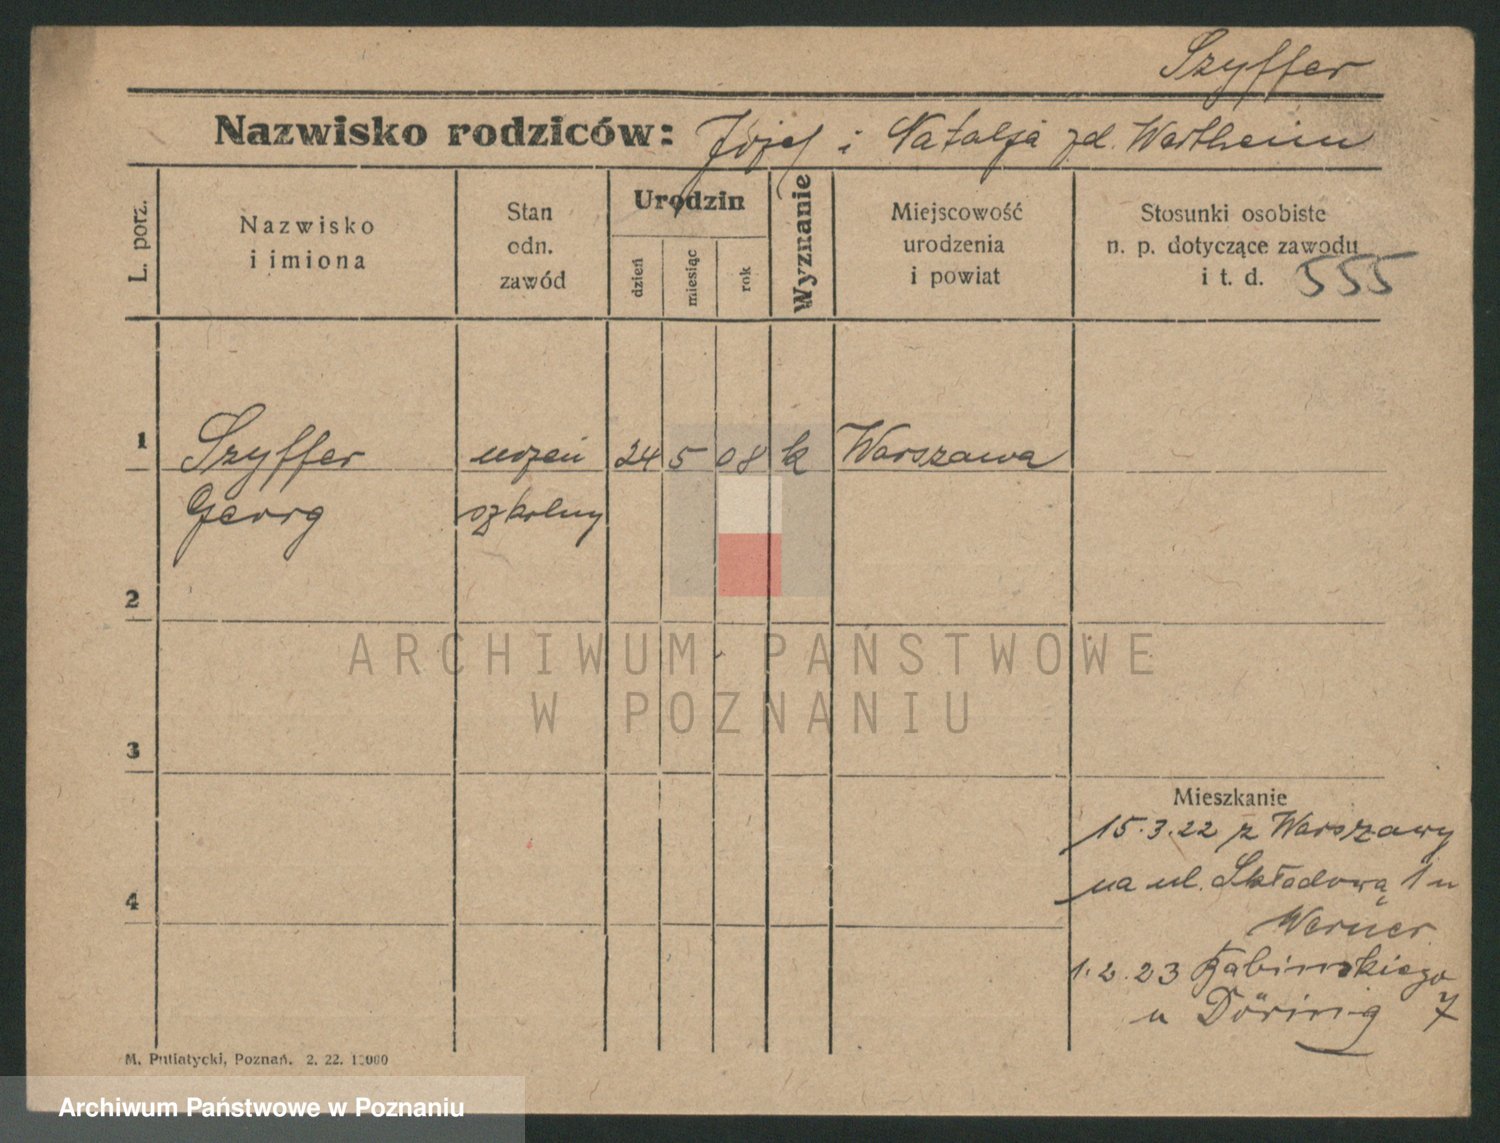 Szyffer
Nazwisko rodziców: Józef i Natalja zd. Wertheim
L. porz.
Nazwisko
i imiona
Stan
odn.
zawód
Urodzin
dzień
miesiąc
rok
Wyznanie
Miejscowość
urodzenia
i powiat
Stosunki osobiste
n. p. dotyczące zawodu
i t. d.
555
1
Szyffer uczeń 24 5 08 k Warszawa
Georg szkolny
2
3
4
Mieszkanie
15.3.22 z Warszawy
na ul. Składową 1 u
Werner
1.2.23 Bąbinskiego
u Döring 7
M. Putiatycki, Poznań. 2. 22. 1000
ARCHIWUM PAŃSTWOWE
W POZNANIU
Archiwum Państwowe w Poznaniu